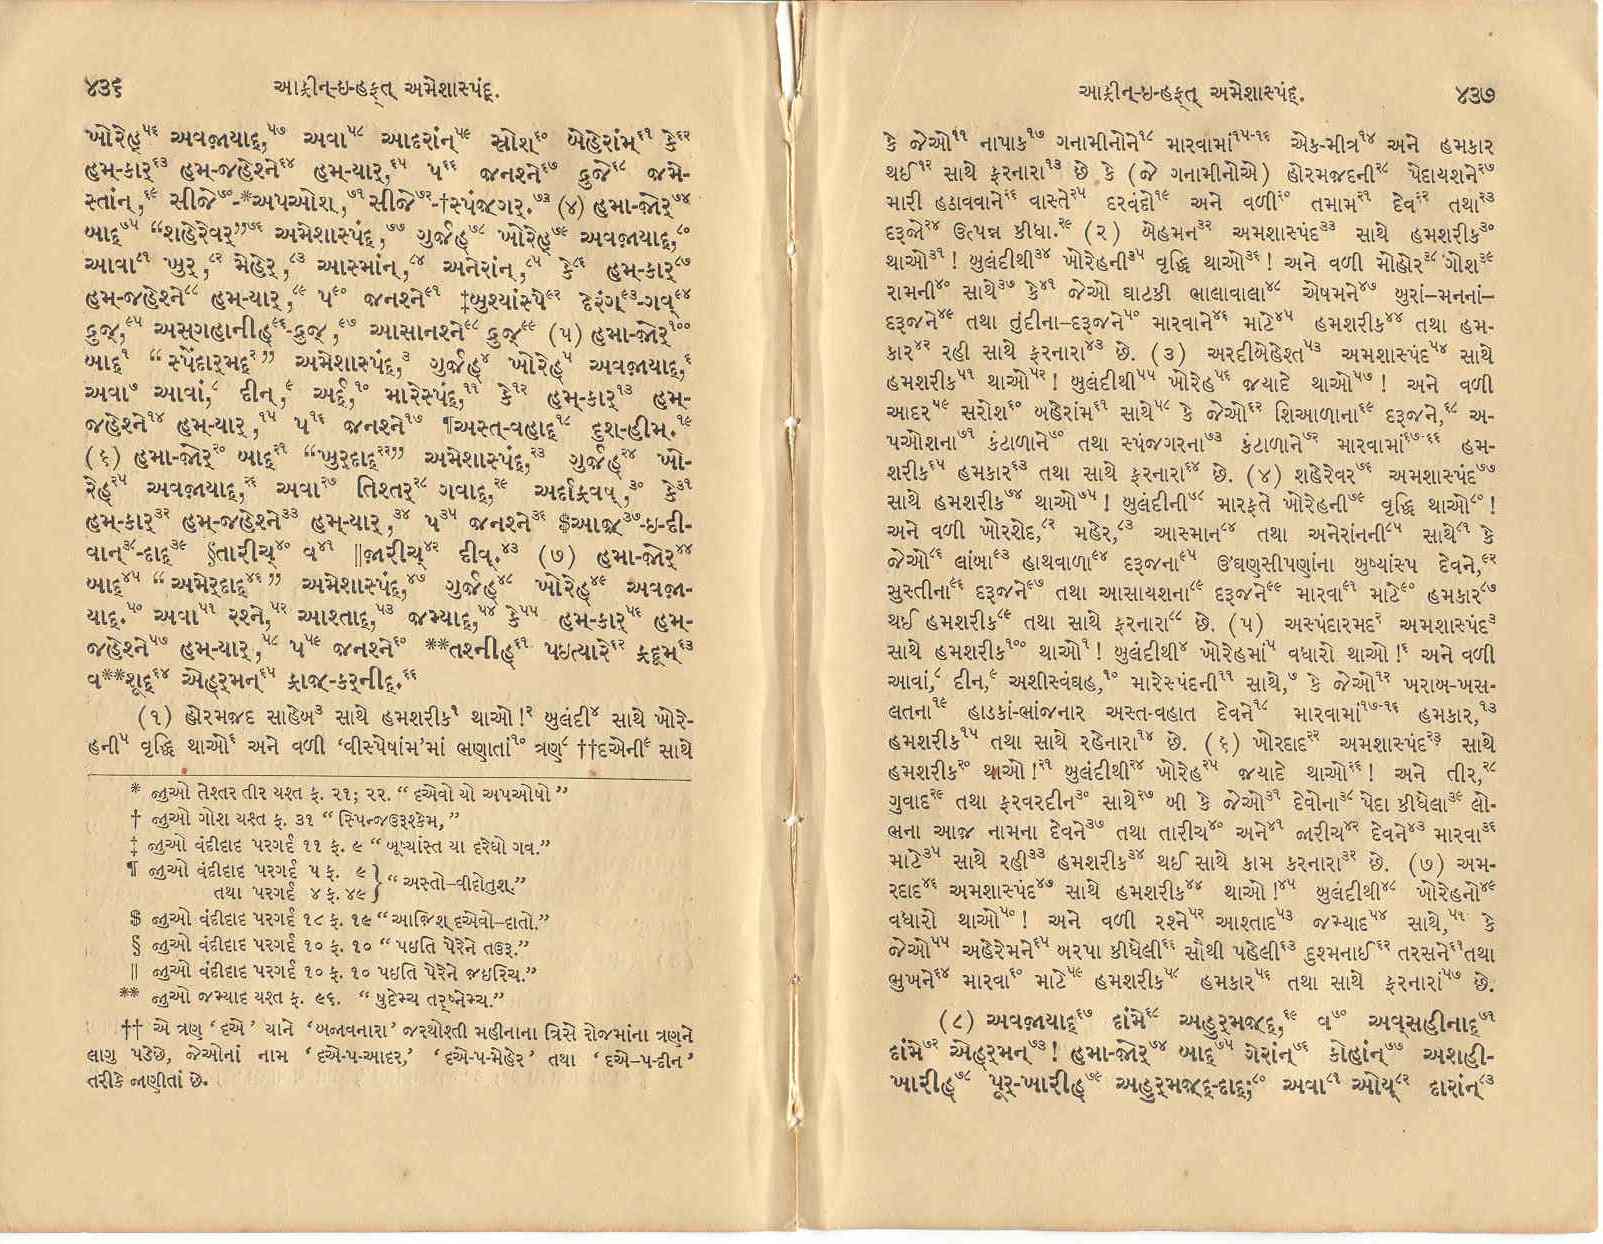 ૪૩૬ આફ્રીન્-ઇ-હફ્ત્ અમેશાસ્પંદ્.
ખોરેહ્૫૬ અવજાયાદ્,૫૭ અવા૫૮ આદરાંન્૫૯ સ્રોશ્૬૦ બેહેરાંમ્૬૧ કે૬૨
હમ્-કાર્૬૩ હમ્-જહેશ્ને૬૪ હમ્-યાર્,૬૫ પ૬૬ જનશ્ને૬૭ દ્રુજે૬૮ જમે-
સ્તાંન્,૬૯ સીજે૭૦-*અપઓશ,૭૧ સીજે૭૨-†સ્પંજગર્.૭૩ (૪) હમા-જોર્૭૪
બાદ્૭૫ “શહેરેવર્”૭૬ અમેશાસ્પંદ્,૭૭ ગુર્જહ્૭૮ ખોરેહ્૭૯ અવજાયાદ્,૮૦
આવા૮૧ ખુર્,૮૨ મેહેર્,૮૩ આસ્માંન્,૮૪ અનેરાંન્,૮૫ કે૮૬ હમ્-કાર્૮૭
હમ્-જહેશ્ને૮૮ હમ્-યાર્,૮૯ પ૯૦ જનશ્ને૯૧ ‡બુશ્યાંસ્પે૯૨ દેરંગ્૯૩-ગવ્૯૪
દ્રુજ્,૯૫ અસ્ગહાનીહ્૯૬-દ્રુજ્,૯૭ આસાનશ્ને૯૮ દ્રુજ્૯૯ (૫) હમા-જોર્૧૦૦
બાદ્૧ “સ્પેંદારમદ્૨” અમેશાસ્પંદ્,૩ ગુર્જહ્૪ ખોરેહ્૫ અવજાયાદ્,૬
અવા૭ આવાં,૮ દીન્,૯ અર્દ્,૧૦ મારેસ્પંદ્,૧૧ કે૧૨ હમ્-કાર્૧૩ હમ્-
જહેશ્ને૧૪ હમ્-યાર્,૧૫ પ૧૬ જનશ્ને૧૭ ¶અસ્ત્-વહાદ્૧૮ દુશ-હીમ.૧૯
(૬) હમા-જોર્૨૦ બાદ્૨૧ “ખુર્દાદ્૨૨” અમેશાસ્પંદ્,૨૩ ગુર્જહ્૨૪ ખો-
રેહ્૨૫ અવજાયાદ્,૨૬ અવા૨૭ તિશ્તર્૨૮ ગવાદ્,૨૯ અર્દાફ્રવષ્,૩૦ કે૩૧
હમ્-કાર્૩૨ હમ્-જહેશ્ને૩૩ હમ્-યાર્,૩૪ પ૩૫ જનશ્ને૩૬ $આજ્૩૭-ઇ-દી-
વાન્૩૮-દાદ્૩૯ §તારીચ્૪૦ વ૪૧ ||જારીચ્૪૨ દીવ્.૪૩ (૭) હમા-જોર્૪૪
બાદ્૪૫ “અમેર્દાદ્૪૬” અમેશાસ્પંદ્,૪૭ ગુર્જહ્૪૮ ખોરેહ્૪૯ અવજા-
યાદ્.૫૦ અવા૫૧ રશ્ને,૫૨ આશ્તાદ્,૫૩ જમ્યાદ્,૫૪ કે૫૫ હમ્-કાર્૫૬ હમ્-
જહેશ્ને૫૭ હમ્-યાર્,૫૮ પ૫૯ જનશ્ને૬૦ **તશ્નીહ્૬૧ પઇત્યારે૬૨ ફ્રદૂમ્૬૩
વ**શૂદ્૬૪ એહ્રમન્૬૫ ફ્રાજ્-કર્નીદ્.૬૬
(૧) હોરમજદ સાહેબ૩ સાથે હમશરીક૧ થાઓ!૨ બુલંદી૪ સાથે ખોરે-
હની૫ વૃદ્ધિ થાઓ૬ અને વળી ‘વીસ્પેષાંમ’માં ભણાતાં૧૦ ત્રણ૮ ††દએની૯ સાથે
* જુઓ તેશ્તર તીર યશ્ત ફ. ૨૧; ૨૨. “દએવો યો અપઓષો”
† જુઓ ગોશ યશ્ત ફ. ૩૧ “સ્પિન્જઉરૂશ્કેમ,”
‡ જુઓ વંદીદાદ પરગર્દ ૧૧ ફ. ૯ “બૂષ્યાંસ્ત યા દરેઘો ગવ.”
¶ જુઓ વંદીદાદ પરગર્દ ૫ ફ. ૯
તથા પરગર્દ ૪ ફ. ૪૯} “અસ્તો-વીદોતુશ્.”
$ જુઓ વંદીદાદ પરગર્દ ૧૮ ફ. ૧૯ “આજિશ્ દએવો-દાતો.”
§ જુઓ વંદીદાદ પરગર્દ ૧૦ ફ. ૧૦ “પઇતિ પેરેને તઉરૂ.”
|| જુઓ વંદીદાદ પરગર્દ ૧૦ ફ. ૧૦ પઇતિ પેરેને જઇરિચ.”
** જુઓ જમ્યાદ યશ્ત ફ. ૯૬. “ષુદેમ્ચ તરૂષ્નેમ્ચ.”
†† એ ત્રણ ‘દએ’ યાને ‘બજાવનારા’ જરથોશ્તી મહીનાના ત્રિસે રોજમાંના ત્રણને
લાગુ પડેછે, જેઓનાં નામ ‘દએ-પ-આદર,’ ‘દએ-પ-મેહેર’ તથા ‘દએ-પ-દીન’
તરીકે જાણીતાં છે.
આફ્રીન્-ઇ-હફ્ત્ અમેશાસ્પંદ્. ૪૩૭
કે જેઓ૧૧ નાપાક૧૭ ગનામીનોને૧૮ મારવામાં૧૫-૧૬ એક-મીત્ર૧૪ અને હમકાર
થઈ૧૨ સાથે ફરનારા૧૩ છે કે (જે ગનામીનોએ) હોરમજદની૨૮ પેદાયશને૨૭
મારી હઠાવવાને૨૬ વાસ્તે૨૫ દરવંદો૧૯ અને વળી૨૦ તમામ૨૧ દેવ૨૨ તથા૨૩
દરૂજો૨૪ ઉત્પન્ન કીધા.૨૯ (૨) બેહમન૩૨ અમશાસ્પંદ૩૩ સાથે હમશરીક૩૦
થાઓ૩૧! બુલંદીથી૩૪ ખોરેહની૩૫ વૃદ્ધિ થાઓ૩૬! અને વળી મોહોર૩૮ ગોશ૩૯
રામની૪૦ સાથે૩૭ કે૪૧ જેઓ ઘાટકી ભાલાવાલા૪૮ એષમને૪૭ બુરાં-મનનાં-
દરૂજને૪૯ તથા તુંદીના-દરૂજને૫૦ મારવાને૪૬ માટે૪૫ હમશરીક૪૪ તથા હમ-
કાર૪૨ રહી સાથે ફરનારા૪૩ છે. (૩) અરદીબેહેશ્ત૫૩ અમશાસ્પંદ૫૪ સાથે
હમશરીક૫૧ થાઓ૫૨! બુલંદીથી૫૫ ખોરેહ૫૬ જયાદે થાઓ૫૭! અને વળી
આદર૫૯ સરોશ૬૦ બહેરાંમ૬૧ સાથે૫૮ કે જેઓ૬૨ શિઆળાના૬૯ દરૂજને,૬૮ અ-
પઓશના૭૧ કંટાળાને૭૦ તથા સ્પંજગરના૭૩ કંટાળાને૭૨ મારવામાં૬૭-૬૬ હમ-
શરીક૬૫ હમકાર૬૩ તથા સાથે ફરનારા૬૪ છે. (૪) શહેરેવર૭૬ અમશાસ્પંદ૭૭
સાથે હમશરીક૭૪ થાઓ૭૫! બુલંદીની૭૮ મારફતે ખોરેહની૭૯ વૃદ્ધિ થાઓ૮૦!
અને વળી ખોરશેદ,૮૨ મહેર,૮૩ આસ્માન૮૪ તથા અનેરાંનની૮૫ સાથે૮૧ કે
જેઓ૮૬ લાંબા૯૩ હાથવાળા૯૪ દરૂજના૯૫ ઉંઘણસીપણાંના બુષ્યાંસ્પ દેવને,૯૨
સુસ્તીના૯૬ દરૂજને૯૭ તથા આસાયશના૯૮ દરૂજને૯૯ મારવા૯૧ માટે૯૦ હમકાર૮૭
થઈ હમશરીક૮૯ તથા સાથે ફરનારા૮૮ છે. (૫) અસ્પંદારમદ૨ અમશાસ્પંદ૩
સાથે હમશરીક૧૦૦ થાઓ૧! બુલંદીથી૪ ખોરેહમાં૫ વધારો થાઓ!૬ અને વળી
આવાં,૮ દીન,૯ અશીસ્વંઘહ,૧૦ મારેસ્પંદની૧૧ સાથે,૭ કે જેઓ૧૨ ખરાબ-ખસ-
લતના૧૯ હાડકાં-ભાંજનાર અસ્ત-વહાત દેવને૧૮ મારવામાં૧૭-૧૬ હમકાર,૧૩
હમશરીક૧૫ તથા સાથે રહેનારા૧૪ છે. (૬) ખોરદાદ૨૨ અમશાસ્પંદ૨૩ સાથે
હમશરીક૨૦ થાઓ!૨૧ બુલંદીથી૨૪ ખોરેહ૨૫ જયાદે થાઓ૨૬! અને તીર,૨૮
ગુવાદ૨૯ તથા ફરવરદીન૩૦ સાથે૨૭ બી કે જેઓ૩૧ દેવોના૩૮ પેદા કીધેલા૩૯ લો-
ભના આજ નામના દેવને૩૭ તથા તારીચ૪૦ અને૪૧ જારીચ૪૨ દેવને૪૩ મારવા૩૬
માટે૩૫ સાથે રહી૩૩ હમશરીક૩૪ થઈ સાથે કામ કરનારા૩૨ છે. (૭) અમ-
રદાદ૪૬ અમશાસ્પંદ૪૭ સાથે હમશરીક૪૪ થાઓ!૪૫ બુલંદીથી૪૮ ખોરેહનો૪૯
વધારો થાઓ૫૦! અને વળી રશ્ને૫૨ આશ્તાદ૫૩ જમ્યાદ૫૪ સાથે,૫૧ કે
જેઓ૫૫ અહેરેમને૬૫ બરપા કીધેલી૬૬ સૌથી પહેલી૬૩ દુશ્મનાઈ૬૨ તરસને૬૧ તથા
ભુખને૬૪ મારવા૬૦ માટે૫૯ હમશરીક૫૮ હમકાર૫૬ તથા સાથે ફરનારાં૫૭ છે.
(૮) અવજાયાદ્૬૭ દાંમે૬૮ અહુર્મજ્દ્,૬૯ વ૭૦ અવ્સહીનાદ્૭૧
દાંમે૭૨ એહ્રમન્૭૩! હમા-જોર્૭૪ બાદ્૭૫ ગેરાંન્૭૬ કોહાંન્૭૭ અશહી-
ખારીહ્૭૮ પૂર્-ખારીહ્૭૯ અહુર્મજ્દ્-દાદ્;૮૦ અવા૮૧ ઓય્૮૨ દારાંન્૮૩